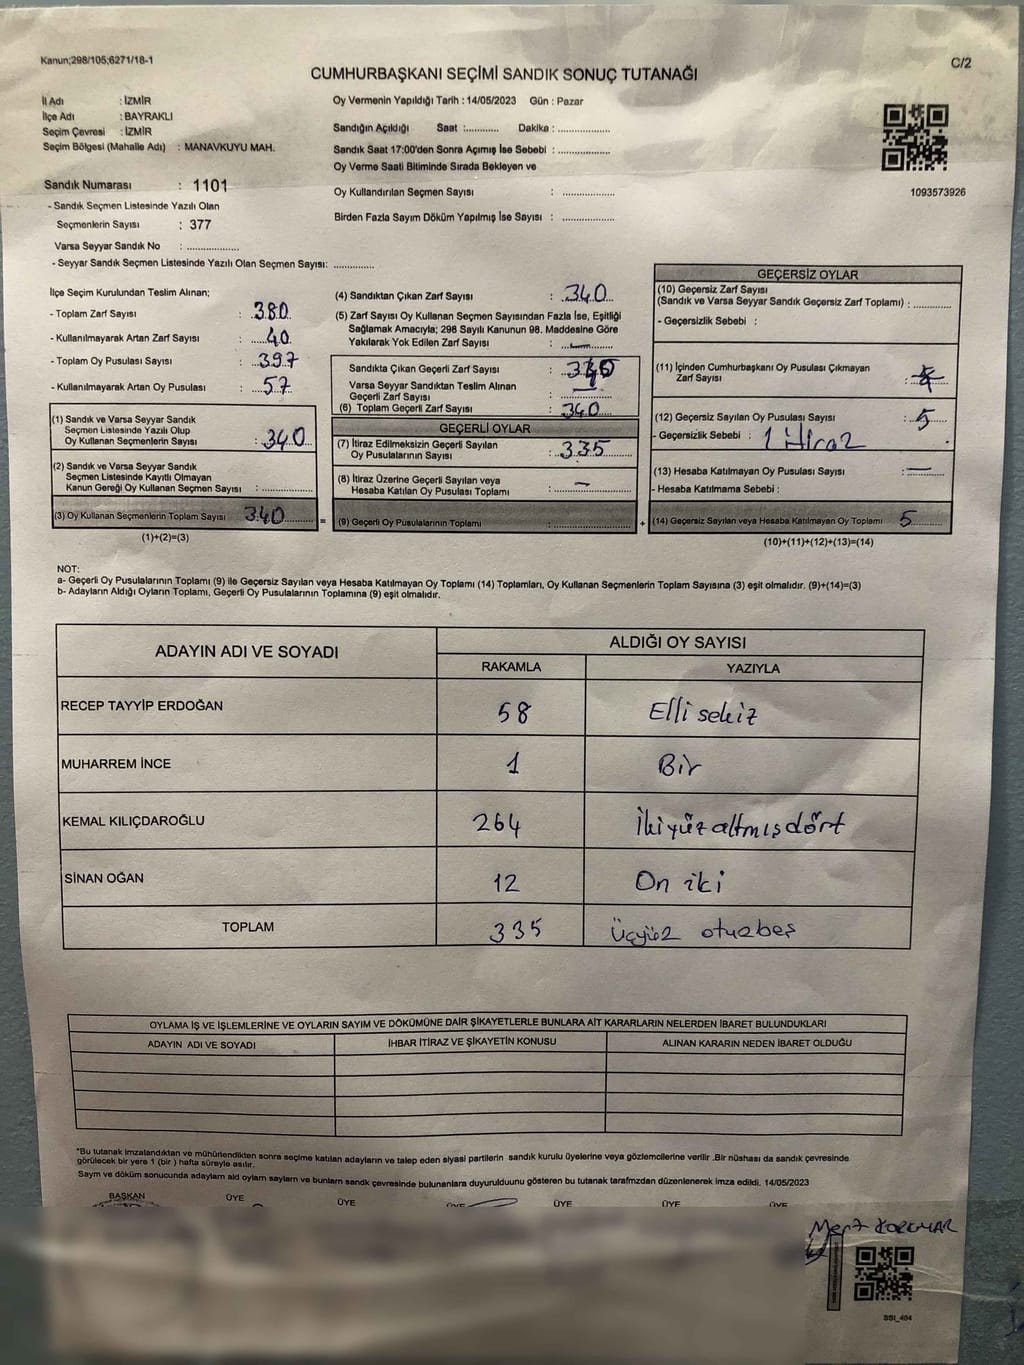 Kanun;298/105;6271/18-1
C/2
CUMHURBAŞKANI SEÇİMİ SANDIK SONUÇ TUTANAĞI
İl Adı : İZMİR
İlçe Adı : BAYRAKLI
Seçim Çevresi : İZMİR
Seçim Bölgesi (Mahalle Adı) : MANAVKUYU MAH.
Sandık Numarası : 1101
- Sandık Seçmen Listesinde Yazılı Olan
Seçmenlerin Sayısı : 377
Varsa Seyyar Sandık No : ..................
- Seyyar Sandık Seçmen Listesinde Yazılı Olan Seçmen Sayısı: ..............
Oy Vermenin Yapıldığı Tarih : 14/05/2023 Gün : Pazar
Sandığın Açıldığı Saat :............ Dakika : ..................
Sandık Saat 17:00'den Sonra Açımış İse Sebebi : ..................
Oy Verme Saati Bitiminde Sırada Bekleyen ve
Oy Kullandırılan Seçmen Sayısı : ..................
Birden Fazla Sayım Döküm Yapılmış İse Sayısı : ..................
1093573926
İlçe Seçim Kurulundan Teslim Alınan;
- Toplam Zarf Sayısı : 380
- Kullanılmayarak Artan Zarf Sayısı : 40
- Toplam Oy Pusulası Sayısı : 397
- Kullanılmayarak Artan Oy Pusulası : 57
(1) Sandık ve Varsa Seyyar Sandık
Seçmen Listesinde Yazılı Olup
Oy Kullanan Seçmenlerin Sayısı : 340
(2) Sandık ve Varsa Seyyar Sandık
Seçmen Listesinde Kayıtlı Olmayan
Kanun Gereği Oy Kullanan Seçmen Sayısı : ..................
(3) Oy Kullanan Seçmenlerin Toplam Sayısı 340
(1)+(2)=(3)
(4) Sandıktan Çıkan Zarf Sayısı : 340
(5) Zarf Sayısı Oy Kullanan Seçmen Sayısından Fazla İse, Eşitliği
Sağlamak Amacıyla; 298 Sayılı Kanunun 98. Maddesine Göre
Yakılarak Yok Edilen Zarf Sayısı : —
Sandıkta Çıkan Geçerli Zarf Sayısı :
Varsa Seyyar Sandıktan Teslim Alınan
Geçerli Zarf Sayısı :
(6) Toplam Geçerli Zarf Sayısı : 340
GEÇERLİ OYLAR
(7) İtiraz Edilmeksizin Geçerli Sayılan
Oy Pusulalarının Sayısı : 335
(8) İtiraz Üzerine Geçerli Sayılan veya
Hesaba Katılan Oy Pusulası Toplamı : —
= (9) Geçerli Oy Pusulalarının Toplamı : .................. +
GEÇERSİZ OYLAR
(10) Geçersiz Zarf Sayısı
(Sandık ve Varsa Seyyar Sandık Geçersiz Zarf Toplamı) : ............
- Geçersizlik Sebebi :
(11) İçinden Cumhurbaşkanı Oy Pusulası Çıkmayan
Zarf Sayısı :
(12) Geçersiz Sayılan Oy Pusulası Sayısı : 5
- Geçersizlik Sebebi :
(13) Hesaba Katılmayan Oy Pusulası Sayısı : —
- Hesaba Katılmama Sebebi :
(14) Geçersiz Sayılan veya Hesaba Katılmayan Oy Toplamı 5
(10)+(11)+(12)+(13)=(14)
NOT:
a- Geçerli Oy Pusulalarının Toplamı (9) ile Geçersiz Sayılan veya Hesaba Katılmayan Oy Toplamı (14) Toplamları, Oy Kullanan Seçmenlerin Toplam Sayısına (3) eşit olmalıdır. (9)+(14)=(3)
b- Adayların Aldığı Oyların Toplamı, Geçerli Oy Pusulalarının Toplamına (9) eşit olmalıdır.
ADAYIN ADI VE SOYADI ALDIĞI OY SAYISI
RAKAMLA YAZIYLA
RECEP TAYYİP ERDOĞAN 58 Elli sekiz
MUHARREM İNCE 1 Bir
KEMAL KILIÇDAROĞLU 264 İkiyüz altmış dört
SİNAN OĞAN 12 On iki
TOPLAM 335 Üçyüz otuzbeş
OYLAMA İŞ VE İŞLEMLERİNE VE OYLARIN SAYIM VE DÖKÜMÜNE DAİR ŞİKAYETLERLE BUNLARA AİT KARARLARIN NELERDEN İBARET BULUNDUKLARI
ADAYIN ADI VE SOYADI İHBAR İTİRAZ VE ŞİKAYETİN KONUSU ALINAN KARARIN NEDEN İBARET OLDUĞU
*Bu tutanak imzalandıktan ve mühürlendikten sonra seçime katılan adayların ve talep eden siyasi partilerin sandık kurulu üyelerine veya gözlemcilerine verilir .Bir nüshası da sandık çevresinde
görülecek bir yere 1 (bir ) hafta süreyle asılır.
Sayım ve döküm sonucunda adayların ald oyların sayların ve bunların sandk çevresinde bulunanlara duyurulduunu gösteren bu tutanak tarafmzdan düzenlenerek imza edildi. 14/05/2023
BAŞKAN ÜYE ÜYE ÜYE ÜYE ÜYE ÜYE
Mert KORKMAR
SSI_404